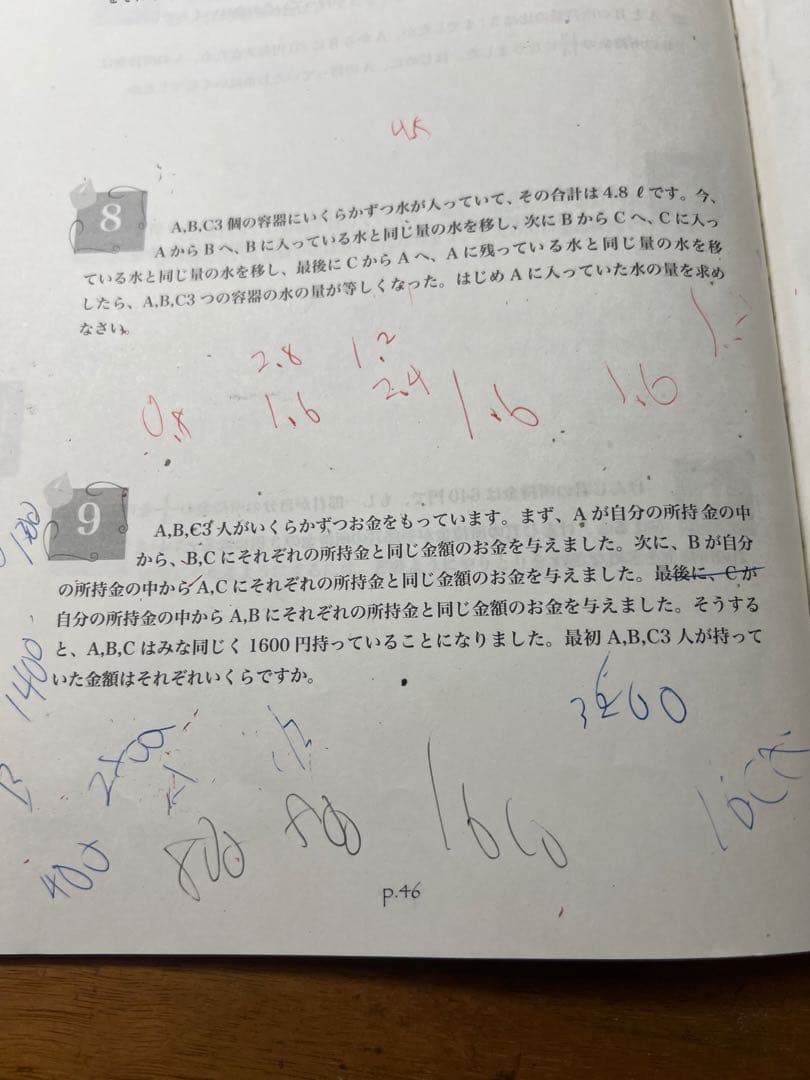 45
8
A,B,C3 個の容器にいくらかずつ水が入っていて、その合計は 4.8 ℓ です。今、
A から B へ、B に入っている水と同じ量の水を移し、次に B から C へ、C に入っ
ている水と同じ量の水を移し、最後に C から A へ、A に残っている水と同じ量の水を移
したら、A,B,C3 つの容器の水の量が等しくなった。はじめ A に入っていた水の量を求め
なさい。
2.8 1.2
2.4
0.8 1.6 1.6 1.6
9
A,B,C3 人がいくらかずつお金をもっています。まず、A が自分の所持金の中
から、B,C にそれぞれの所持金と同じ金額のお金を与えました。次に、B が自分
の所持金の中から A,C にそれぞれの所持金と同じ金額のお金を与えました。最後に、C が
自分の所持金の中から A,B にそれぞれの所持金と同じ金額のお金を与えました。そうする
と、A,B,C はみな同じく 1600 円持っていることになりました。最初 A,B,C3 人が持って
いた金額はそれぞれいくらですか。
1400
3200
400 800 800 1600
p.46